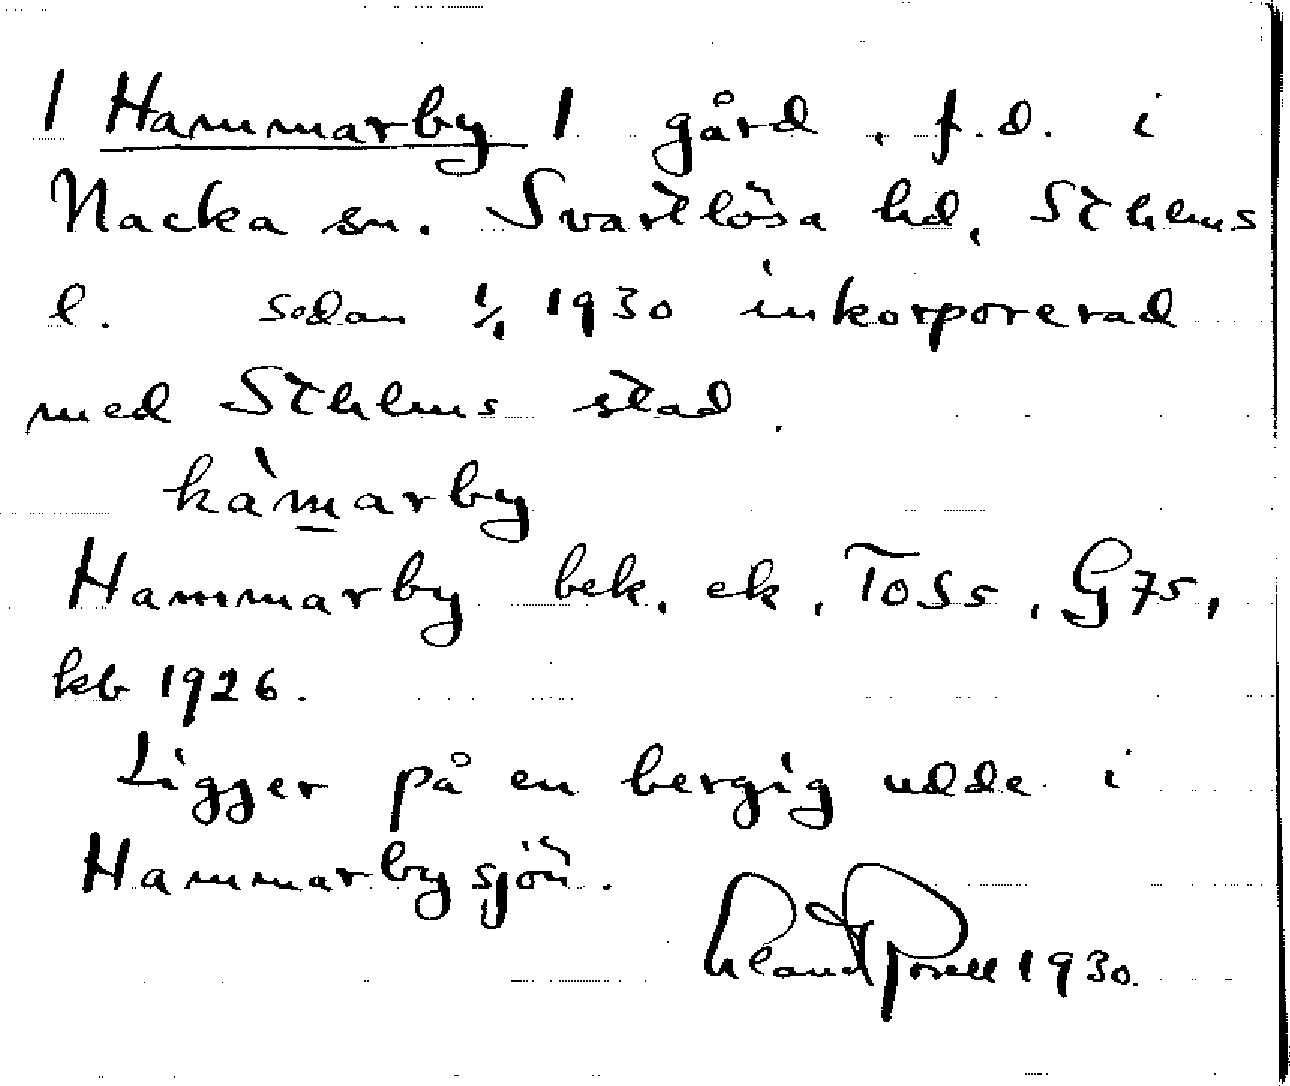 1 Hammarby 1 gård, f.d. i
Nacka sn. Svartlösa hd, Sthlms
l. sedan 1/1 1930 inkorporerad
med Sthlms stad.
hàmarby
Hammarby bek. ek, To S5, G 75,
kb 1926.
Ligger på en bergig udde i
Hammarbysjön.
1930.